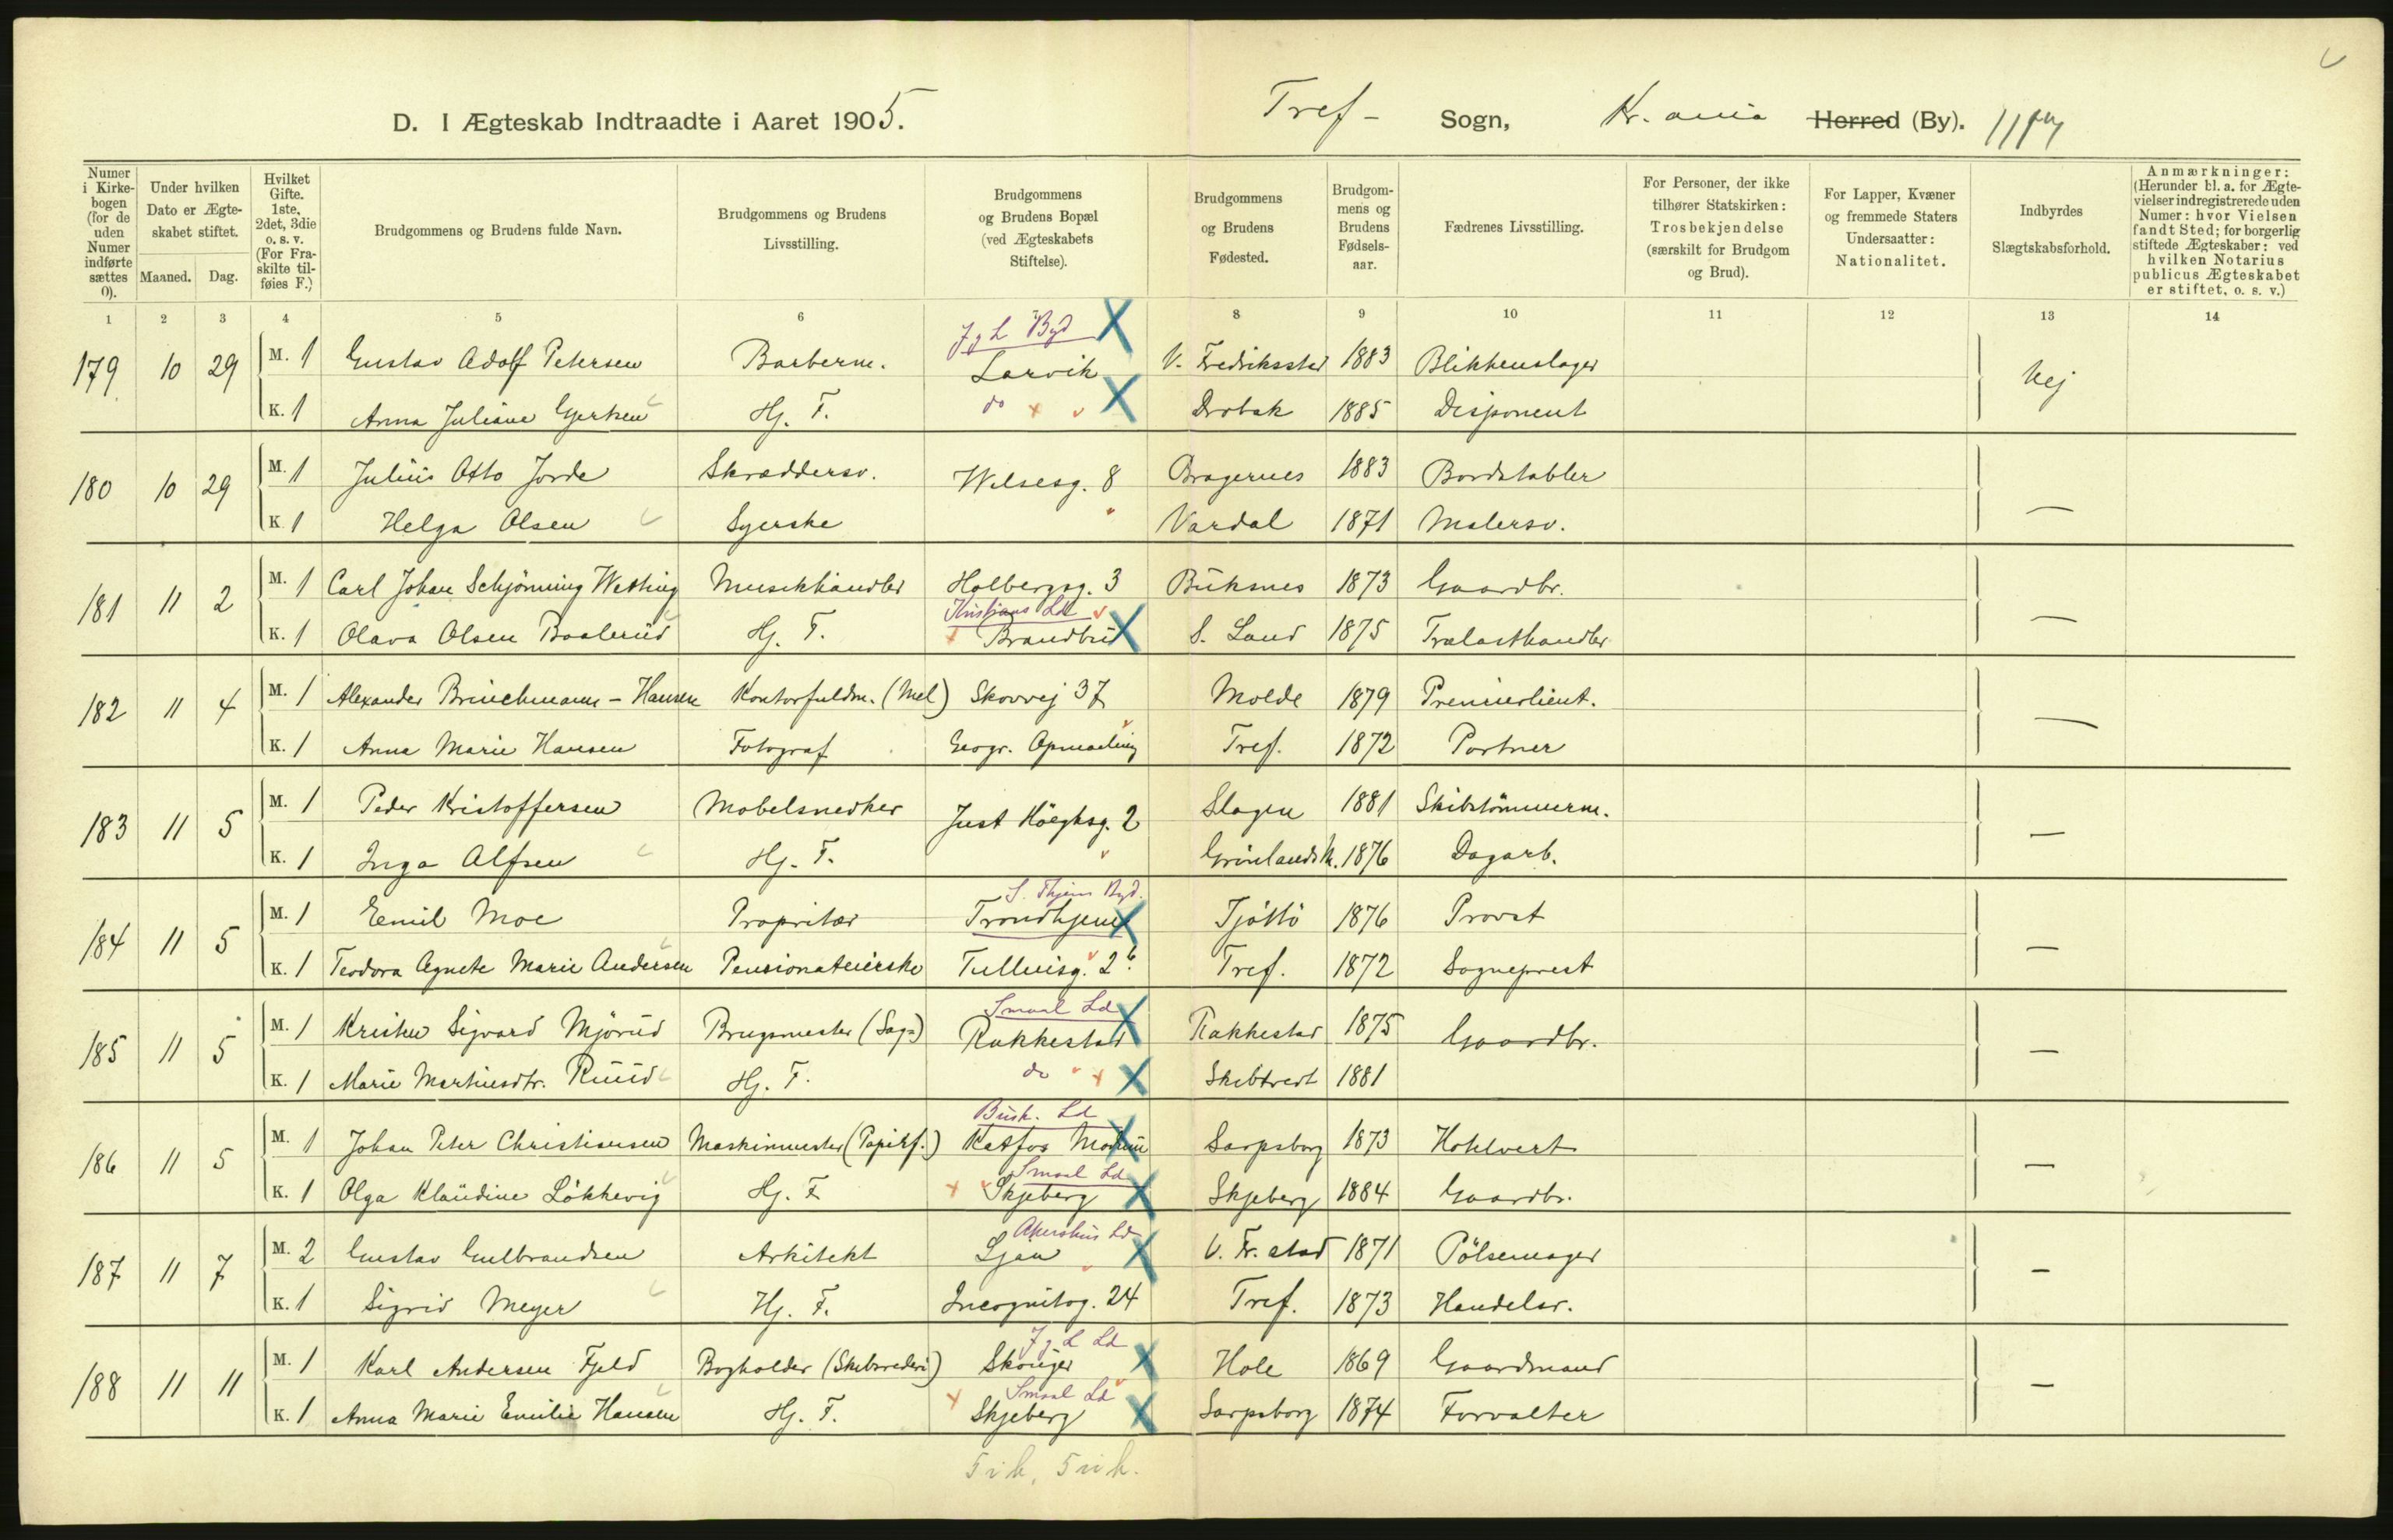 D. I Ægteskab Indtraadte i Aaret 1905. Tref- Sogn, Kr.ania Herred (By).
Numer i Kirke-bogen (for de uden Numer indførte sættes 0).
Under hvilken Dato er Ægte-skabet stiftet.
Maaned. Dag.
Hvilket Gifte. 1ste, 2det, 3die o. s. v. (For Fra-skilte til-føies F.)
Brudgommens og Brudens fulde Navn.
Brudgommens og Brudens Livsstilling.
Brudgommens og Brudens Bopæl (ved Ægteskabets Stiftelse).
Brudgommens og Brudens Fødested.
Brudgom-mens og Brudens Fødsels-aar.
Fædrenes Livsstilling.
For Personer, der ikke tilhører Statskirken: Trosbekjendelse (særskilt for Brudgom og Brud).
For Lapper, Kvæner og fremmede Staters Undersaatter: Nationalitet.
Indbyrdes Slægtskabsforhold.
Anmærkninger: (Herunder bl. a. for Ægte-vielser indregistrerede uden Numer: hvor Vielsen fandt Sted; for borgerlig stiftede Ægteskaber: ved hvilken Notarius publicus Ægteskabet er stiftet, o. s. v.)
1 2 3 4 5 6 8 9 10 11 12 13 14
J g L Byd
179 10 29 M. 1 Gustav Adolf Petersen Barberm. Larvik V. Fredriksstad 1883 Blikkenslager Nej
K. 1 Anna Juliane Gjerksen Hj. F. do Drøbak 1885 Disponent
180 10 29 M. 1 Julius Otto Jorde Skræddersv. Welsesg. 8 Bragernes 1883 Bordstabler —
K. 1 Helga Olsen Syerske " Vardal 1871 Malersv.
181 11 2 M. 1 Carl Johan Schjönning Wetting Musikhandler Holbergsg. 3 Buksnes 1873 Gaardbr. —
Kristians Ld
K. 1 Olava Olsen Baalerud Hj. F. Brandbu S. Land 1875 Trælasthandler
182 11 4 M. 1 Alexander Brinchmann-Hansen Kontorfuldm. (Mel) Skovvej 37 Molde 1879 Premierlieut. —
K. 1 Anna Marie Hansen Fotograf Geogr. Opmaaling Tref. 1872 Portner
183 11 5 M. 1 Peder Kristoffersen Møbelsnedker Just Höeghsg. 2 Slagen 1881 Skibstömmerm. —
K. 1 Inga Alfsen Hj. F. Grönlands k. 1876 Dagarb.
S. Thjems Byd.
184 11 5 M. 1 Emil Moe Propritær Trondhjem Tjöttö 1876 Provst —
K. 1 Teodora Agnete Marie Andersen Pensionateierske Tullinsg. 2 Tref. 1872 Sogneprest
Smaal Ld
185 11 5 M. 1 Kristen Sigvard Mjörud Brugsmester (Sag) Rakkestad Rakkestad 1875 Gaardbr. —
K. 1 Marie Martinsdtr. Ruud Hj. F. do Skibtvedt 1881
Busk. Ld
186 11 5 M. 1 Johan Peter Christiansen Maskinmester (Papirf.) Katfos Modum Sarpsborg 1873 —
Smaal Ld
K. 1 Olga Klaudine Lökkevig Hj. F. Skjeberg Skjeberg 1884 Gaardbr.
Akershus Ld
187 11 7 M. 2 Gustav Gulbrandsen Arkitekt Ljan V. Fr.stad 1871 Pölsemager —
K. 1 Sigrid Meyer Hj. F. Incognitog. 24 Tref. 1873 Handelsr.
J g L Ld
188 11 11 M. 1 Karl Andersen Fjeld Bogholder (Skibsrederi) Skouger Hole 1869 Gaardmand —
Smaal Ld
K. 1 Anna Marie Emilie Hansen Hj. F. Skjeberg Sarpsborg 1874 Forvalter